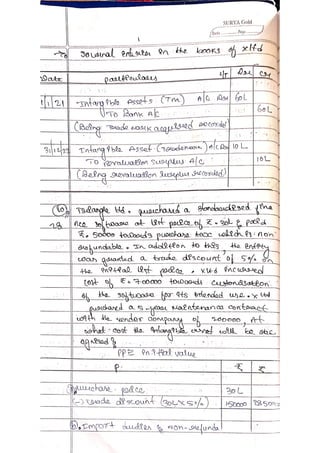 SURYA Gold
Date Page
1
Journal Entries in the books of x Ltd
Date particulars L/F Dr Cr
1/1/21 Intangible Assets (Tm) A/c Dr 60L
To Bank A/c 60L
(Being Trade mark acquired recorded
31/12/22 Intangible Asset (Trademark) A/c Dr 10L
To revaluation surplus A/c 10L
(Being revaluation surplus recorded)
Triangle Ltd. purchased a standardised fina
28 nce software at list price of ₹.30L & paid
₹.50000 towards purchase tax which is non
refundable. In addition to this, the entity
was granted a trade discount of 5% on
the initial list price. x Ltd incurred
cost of ₹.700000 towards customization
of the software for its intended use. x Ltd
purchased a 5 year maintenance contract
with the vendor company of 200000, At
what cost the intangible asset will be rec
ognised?
PPE initial value
p. ₹ ₹
purchase price 30L
(-) trade discount (30L×5%) 150000 28500
Import duties & non-refunda